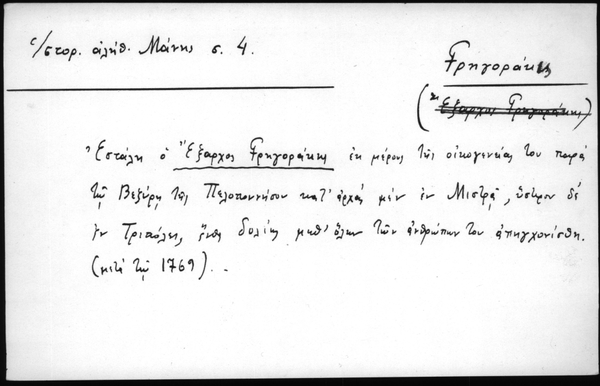 Ἱστορ. ἀλήθ. Μάνης σ. 4.
Γρηγοράκης
(Ἔξαρχος Γρηγοράκης)
Ἐστάλη ὁ Ἔξαρχος Γρηγοράκης ἐκ μέρους τῆς οἰκογενείας του παρὰ
τῷ Βεζύρῃ τῆς Πελοποννήσου κατ' ἀρχὰς μὲν ἐν Μιστρᾷ, ὕστερον δὲ
ἐν Τριπόλει, ἔνθα δολίως μεθ' ὅλων τῶν ἀνθρώπων του ἀπηγχονίσθη.
(μετὰ τῷ 1769)..